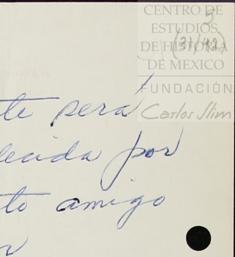 CENTRO DE
ESTUDIOS
DE HISTORIA
DE MÉXICO
FUNDACIÓN
Carlos Slim
5
(31/42)
te perá
lecida por
to amigo